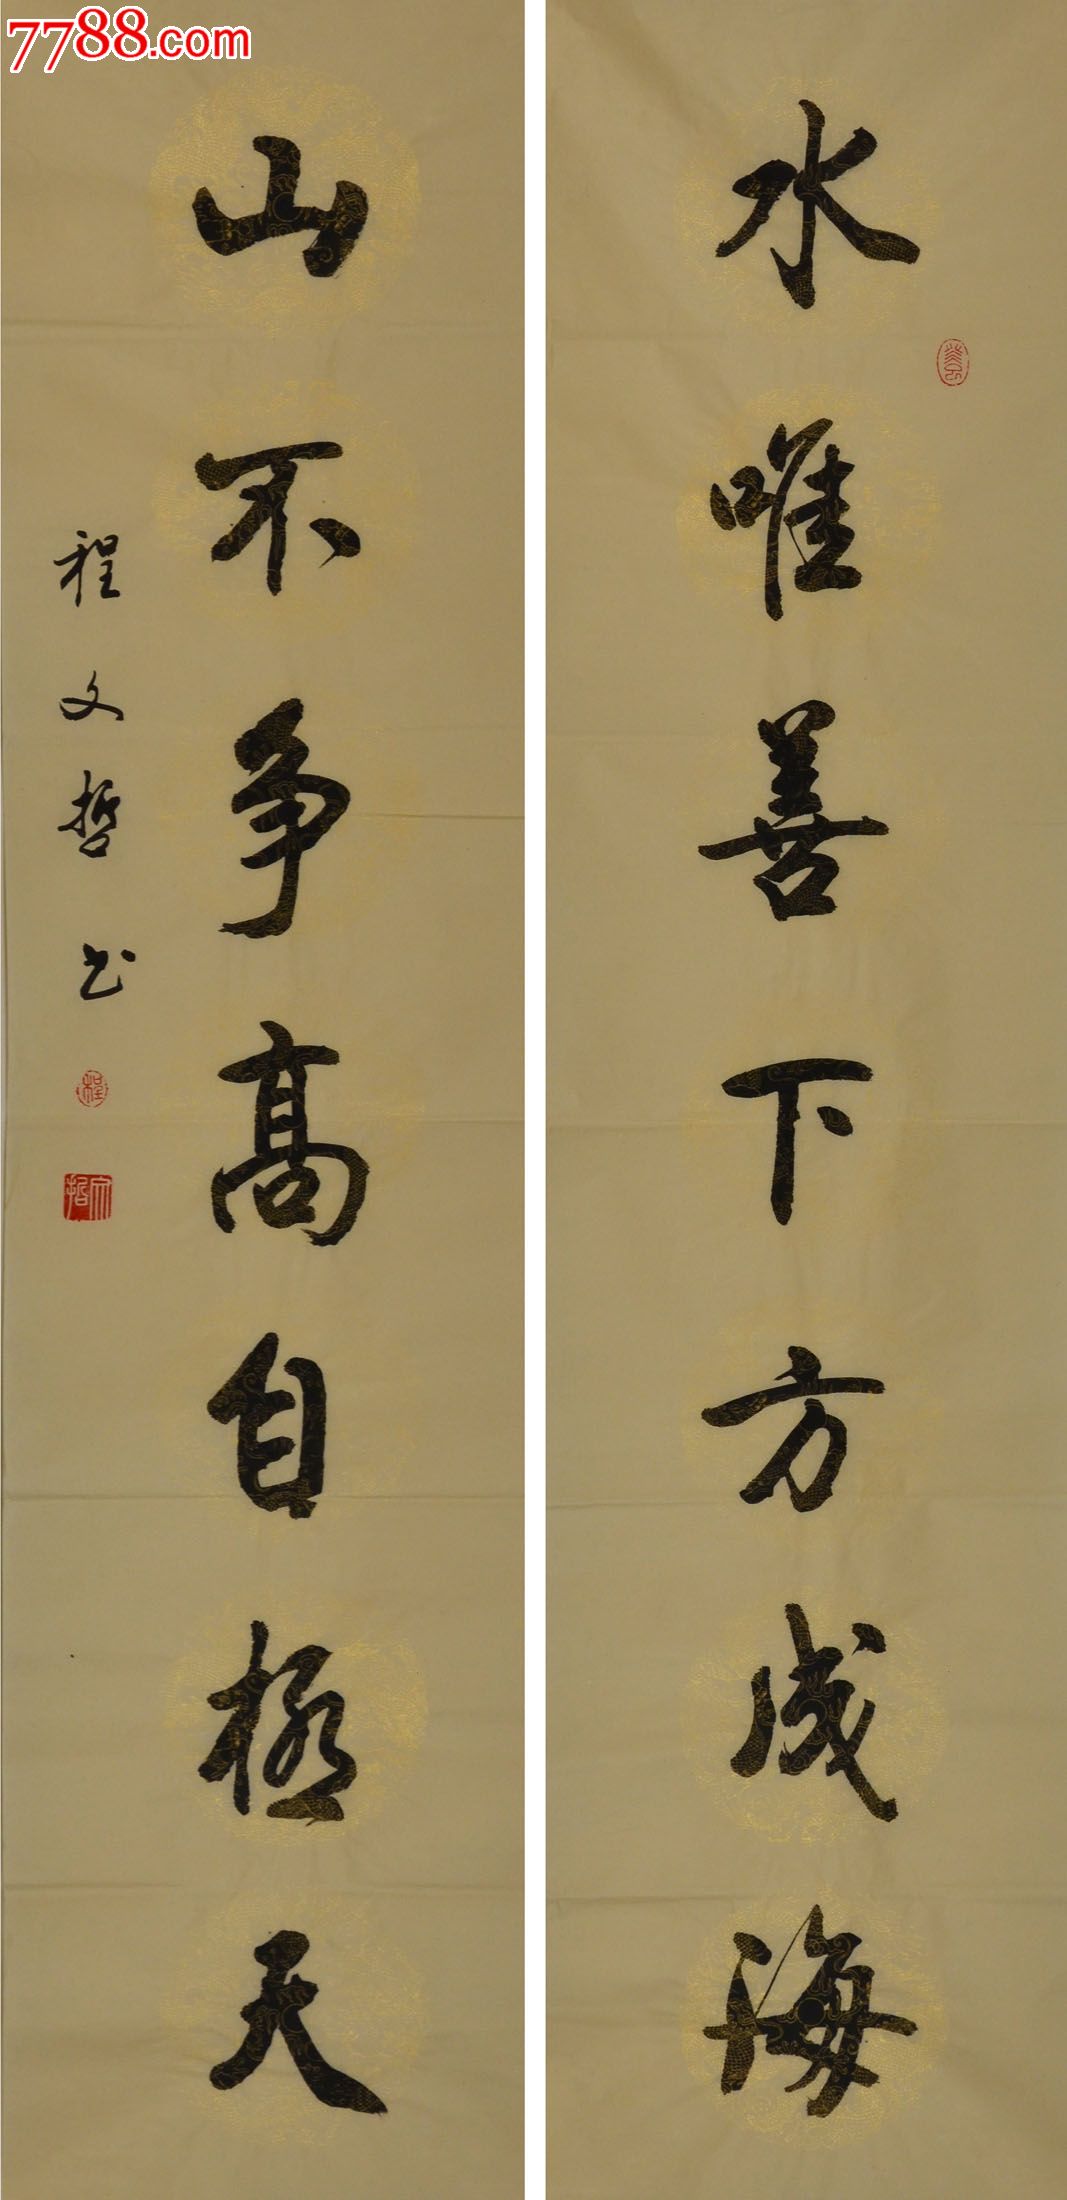 7788.com
水唯善下方成海
山不争高自极天
程文哲书
程
文哲